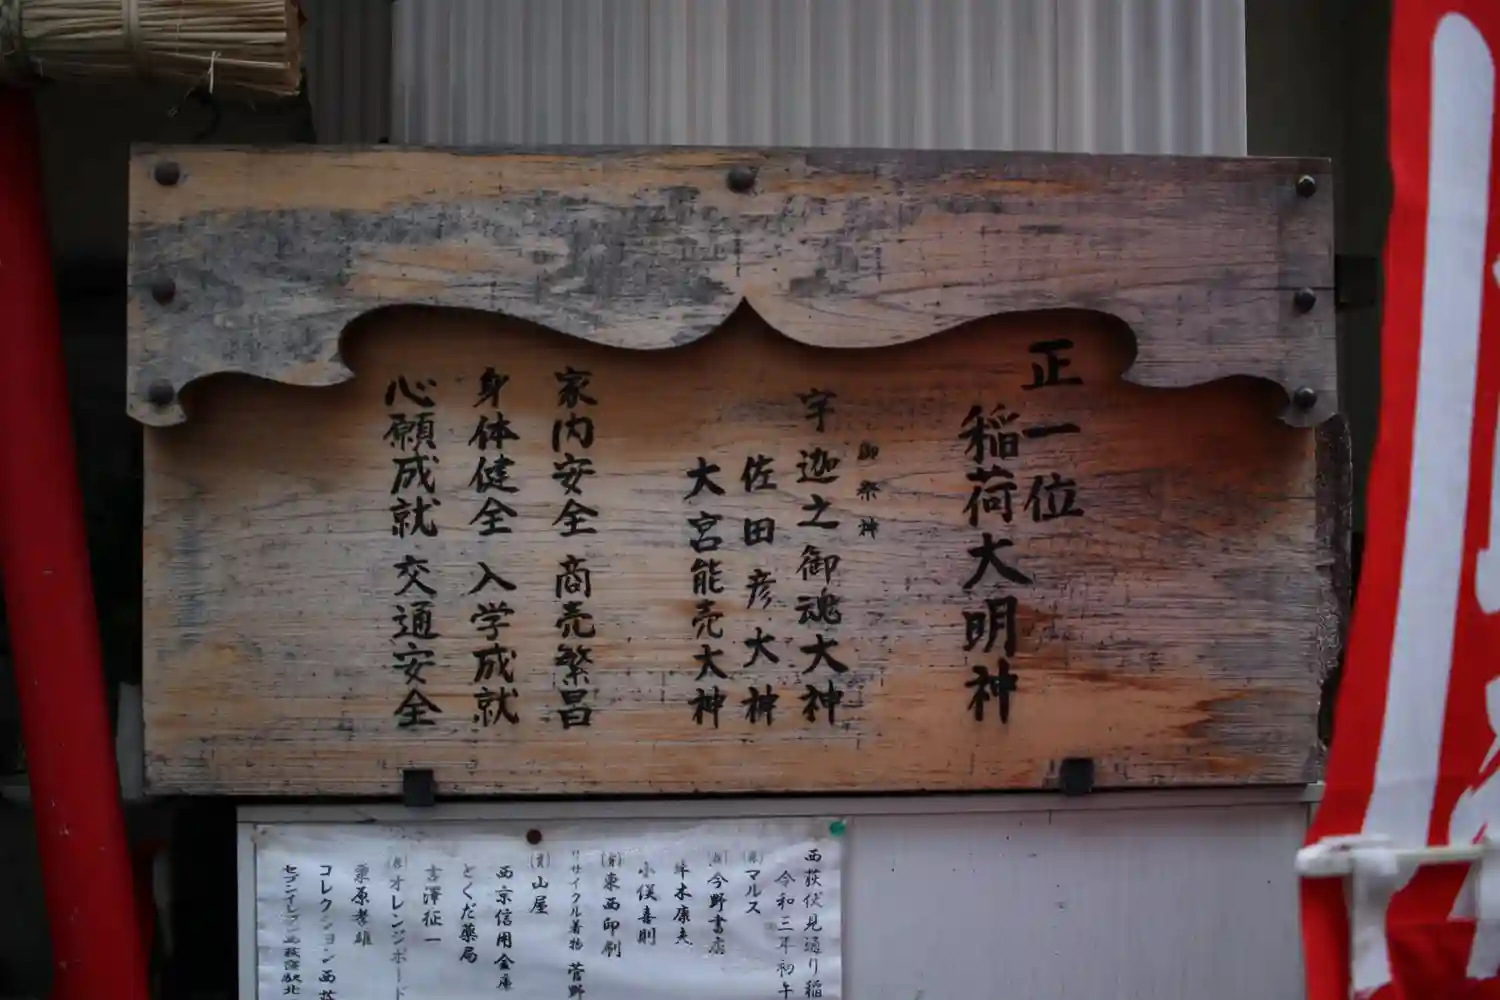 正一位
稲荷大明神
御祭神
宇迦之御魂大神
佐田彦大神
大宮能売大神
家内安全 商売繁昌
身体健全 入学成就
心願成就 交通安全
西荻伏見通り稲
令和三年初午
マルス
今野書店
康夫
小俣喜則
東西印刷
リサイクル着物 菅野
山屋
西京信用金庫
とくだ薬局
吉澤征一
オレンジボード
栗原孝雄
コレクション西荻
セブンイレブン西荻窪駅北